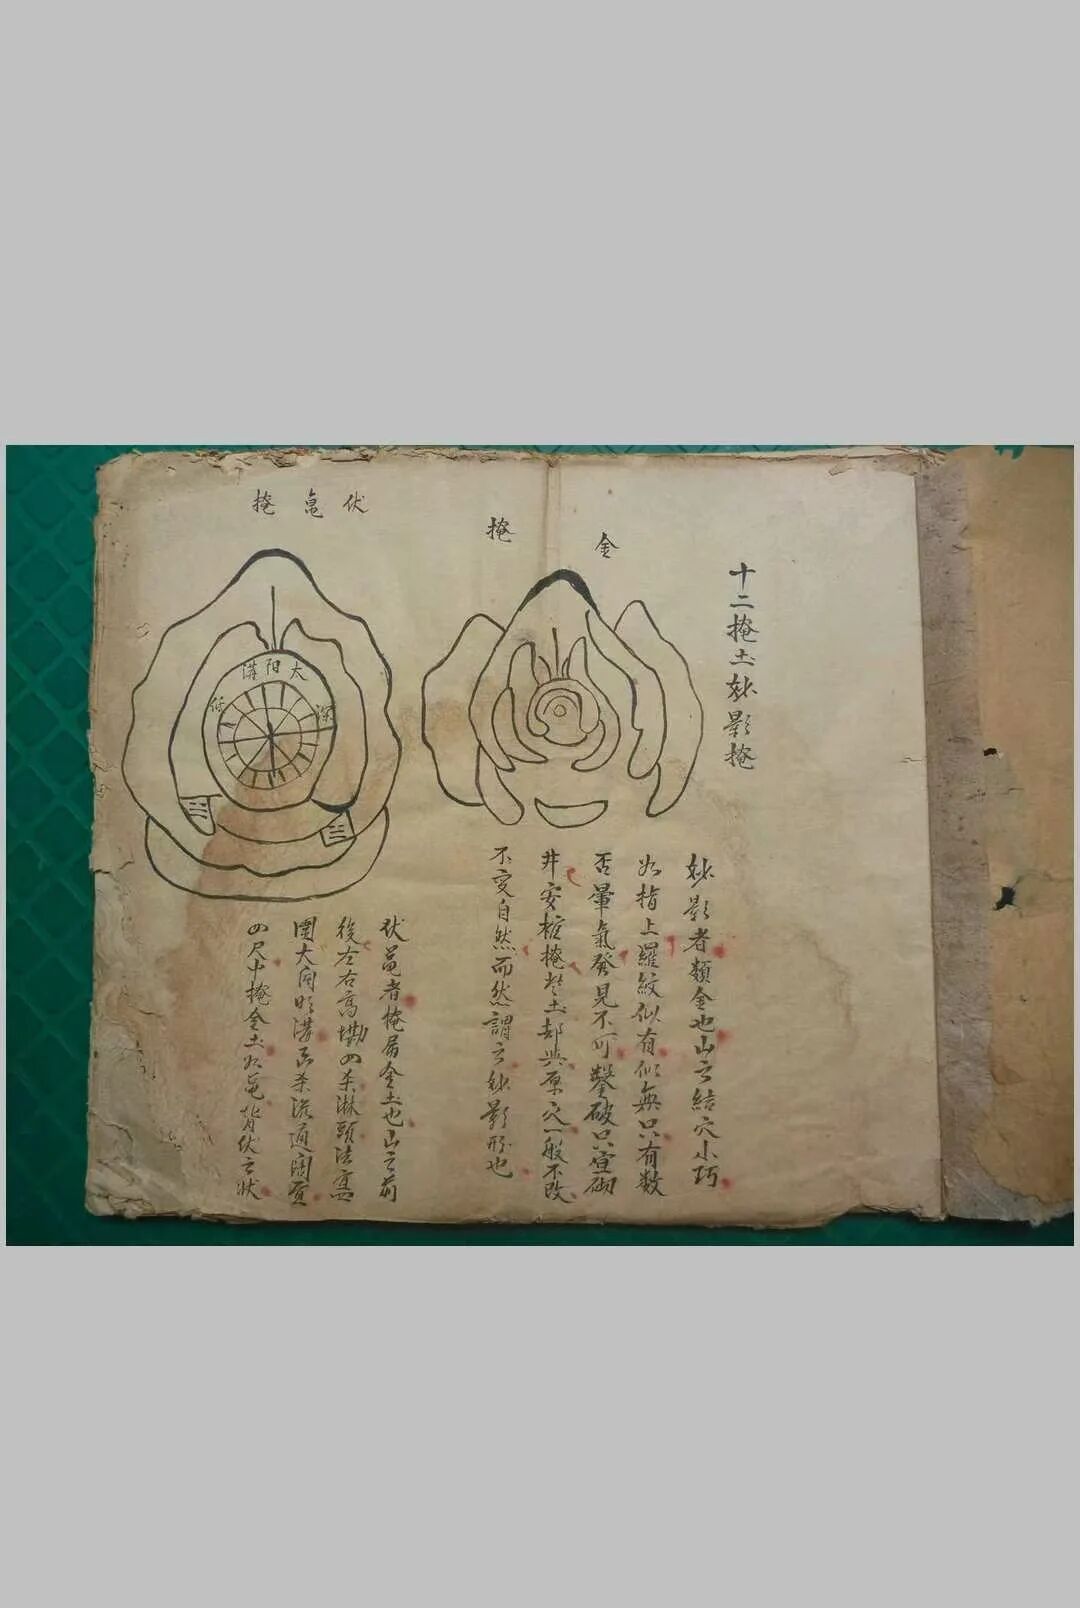 十二掩土妙影掩
金掩
妙影者類金也山之結穴小巧
如指上羅紋似有似無只有数
否暈氣發見不可鑿破只宜砌
井安棺掩土却與原穴一般不改
不变自然而然謂之妙影形也
伏亀掩
太阳溝
深
伏黾者掩局金土也山之前
後左右高墈四杀淋頭法宜
開大向明溝杀深通闊
四尺中掩金土如黾背伏之狀